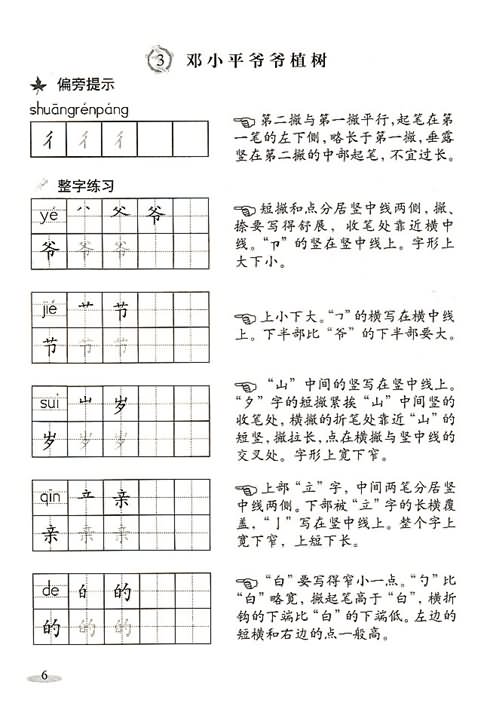 3 邓小平爷爷植树
偏旁提示
shuāngrénpáng
彳 彳 彳
第二撇与第一撇平行,起笔在第
一笔的左下侧,略长于第一撇,垂露
竖在第二撇的中部起笔,不宜过长。
整字练习
yé 父 爷
爷 爷 爷
短撇和点分居竖中线两侧,撇、
捺要写得舒展,收笔处靠近横中
线。“卩”的竖在竖中线上。字形上
大下小。
jié 艹 节
节 节 节
上小下大。“㇆”的横写在横中线
上。下半部比“爷”的下半部要大。
suì 山 岁
岁 岁 岁
“山”中间的竖写在竖中线上。
“夕”字的短撇紧挨“山”中间竖的
收笔处,横撇的折笔处靠近“山”的
短竖,撇拉长,点在横撇与竖中线的
交叉处。字形上宽下窄。
qīn 立 亲
亲 亲 亲
上部“立”字,中间两笔分居竖
中线两侧。下部被“立”字的长横覆
盖,“亅”写在竖中线上。整个字上
宽下窄,上短下长。
de 白 的
的 的 的
“白”要写得窄小一点。“勺”比
“白”略宽,撇起笔高于“白”,横折
钩的下端比“白”的下端低。左边的
短横和右边的点一般高。
6